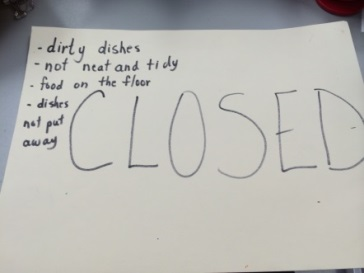 - dirty dishes
- not neat and tidy
- food on the floor
- dishes
not put
away
CLOSED